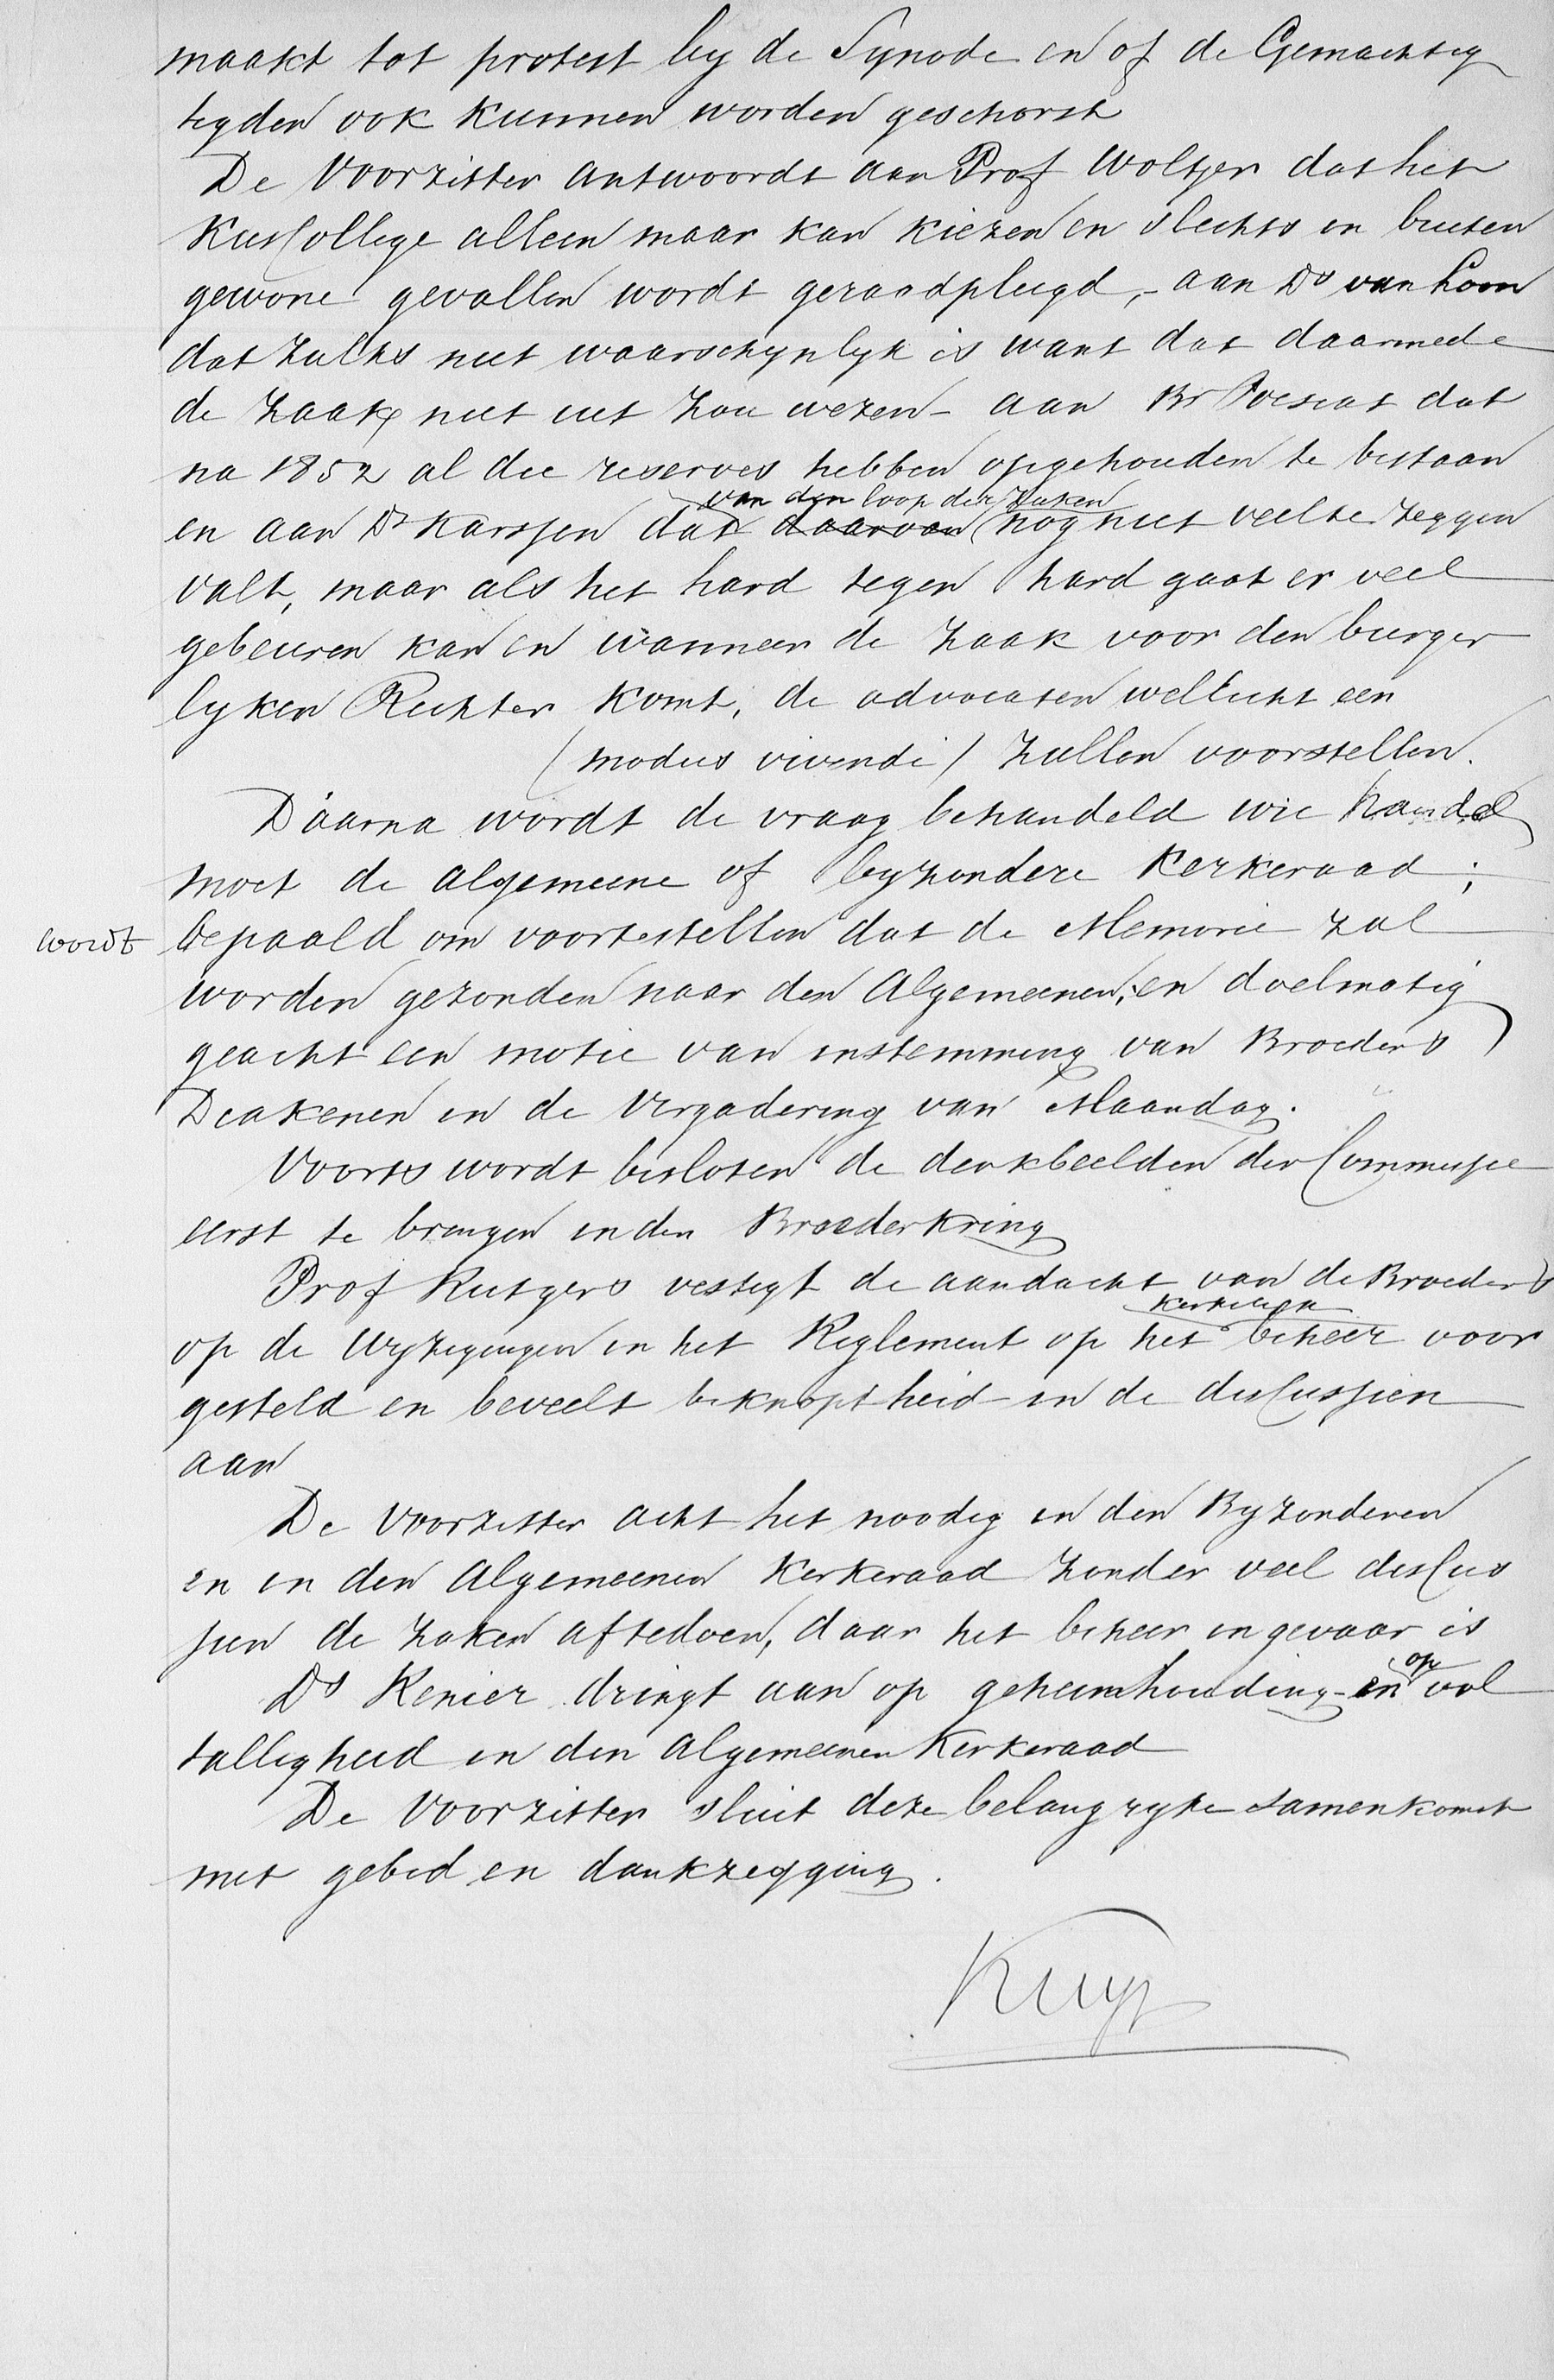 maakt tot protest by de Synode en of de Gemachtig
tegden ook kunnen worden geschorst
De Voorzitter antwoordt aan Prof Woltjer dat het
KiesCollege alleen maar kan kiezen en slechts in buiten
gewone gevallen wordt geraadpleegd, - aan Ds van Loon
dat zulks niet waarschynlyk is want dat daarmede
de zaak niet uit zou wezen - aan Br Poesiat dat
na 1852 al die reserves hebben opgehouden te bestaan
van den loop der zaken
en aan Dr Karssen dat daarvan nog niet veel te zeggen
valt, maar als het hard tegen hard gaat er veel
gebeuren kan en wanneer de zaak voor den burger
lyken Rechter komt, de advocaten wellicht een
(modus vivendi) zullen voorstellen.
Daarna wordt de vraag behandeld wie handel
moet de algemeene of byzondere Kerkeraad;
wordt bepaald om voortestellen dat de Memorie zal
worden gezonden naar den Algemeenen; en doelmatig
geacht een motie van instemming van Broeders
Diakenen in de Vergadering van Maandag.
Voorts wordt besloten de denkbeelden der Commissie
eerst te brengen in den Broederkring
Prof Rutgers vestigt de aandacht van de Broeders
kerkelyk
op de wyzigingen in het Reglement op het beheer voor
gesteld en beveelt beknoptheid in de disCussien
aan
De Voorzitter acht het noodig in den Byzonderen
en in den Algemeenen Kerkeraad zonder veel disCus
sien de zaken aftedoen, daar het beheer in gevaar is
op
Ds Renier dringt aan op geheimhouding - en vol
talligheid in den Algemeenen Kerkeraad
De Voorzitter sluit deze belangryke samenkomst
met gebed en dankzegging.
Kuyp